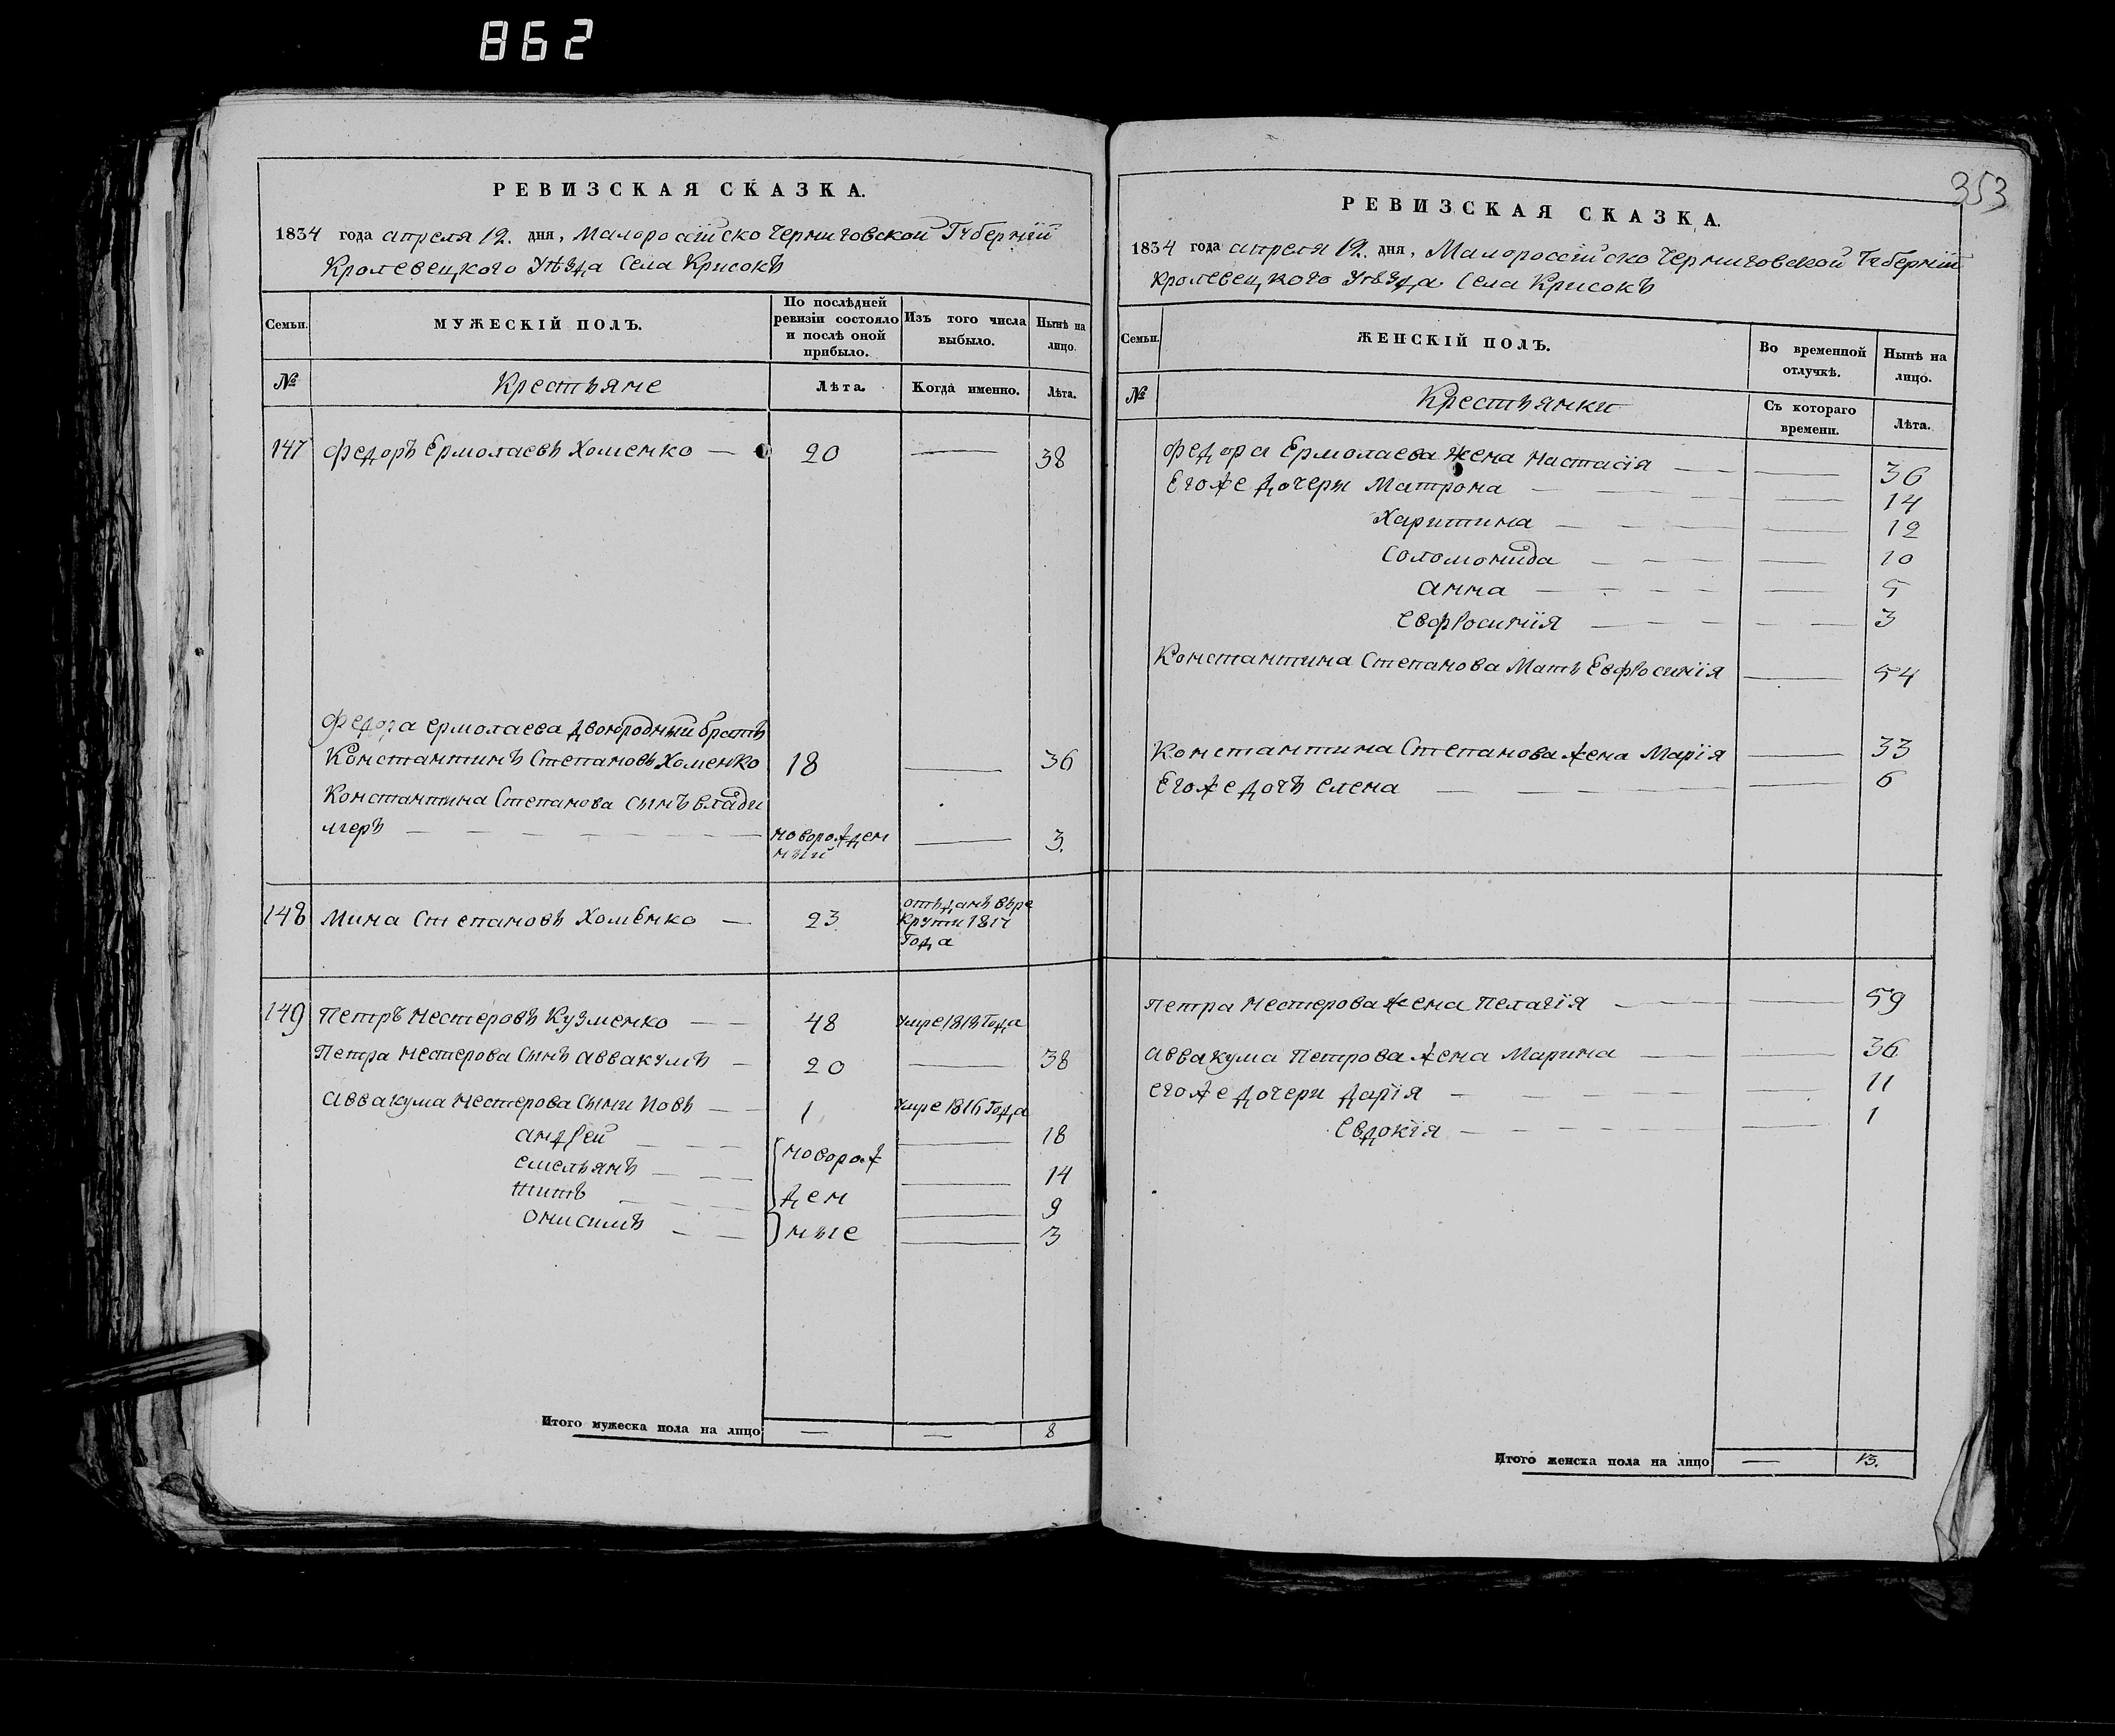 862
РЕВИЗСКАЯ СКАЗКА.
1834 года апреля 12. дня, Малоросійско Черниговской Губерніи
Кролевецкого Уѣзда Села Крисокъ
Семьи. МУЖЕСКІЙ ПОЛЪ. По послѣдней ревизіи состояло и послѣ оной прибыло. Изъ того числа выбыло. Нынѣ на лицо.
№ Крестьяне Лѣта. Когда именно. Лѣта.
147 Федоръ Ермолаевъ Хоменко — 20 — 38
Федора Ермолаева двоюродный братъ
Константинъ Степановъ Хоменко 18 — 36
Константина Степанова сынъ Влади
меръ — новорожден — 3.
ный
148 Мина Степановъ Хоменко — 23 отъданъ въре
крути 1817
Года
149 Петръ Нестеровъ Кузменко — 48 Умре 1818 Года
Петра Нестерова Сынъ Аввакумъ — 20 — 38
Аввакума Нестерова Сыни Иовъ — 1 Умре 1816 Года
Андрей — новорож — 18
Емельянъ — — 14
Титъ — ден — 9
Онисимъ — ные — 3
Итого мужеска пола на лицо — — 8
353
РЕВИЗСКАЯ СКАЗКА.
1834 года апреля 12. дня, Малороссійско Черниговской Губерніи
Кролевецкого Уѣзда Села Крисокъ
Семьи. ЖЕНСКІЙ ПОЛЪ. Во временной отлучкѣ. Нынѣ на лицо.
№ Крестьянки Съ котораго времени. Лѣта.
Федора Ермолаева жена Настасія — — 36
Его же дочери Матрона — — 14
Харитина — — 12
Соломонида — — 10
Анна — — 5
Евфросинія — — 3
Константина Степанова Мать Евфросинія — 54
Константина Степанова жена Марія — 33
Его же дочъ Елена — — 6
Петра Нестерова жена Пелагія — — 59
Аввакума Петрова жена Марина — — 36
Его же дочери Дарія — — 11
Евдокія — — 1
Итого женска пола на лицо — 13.